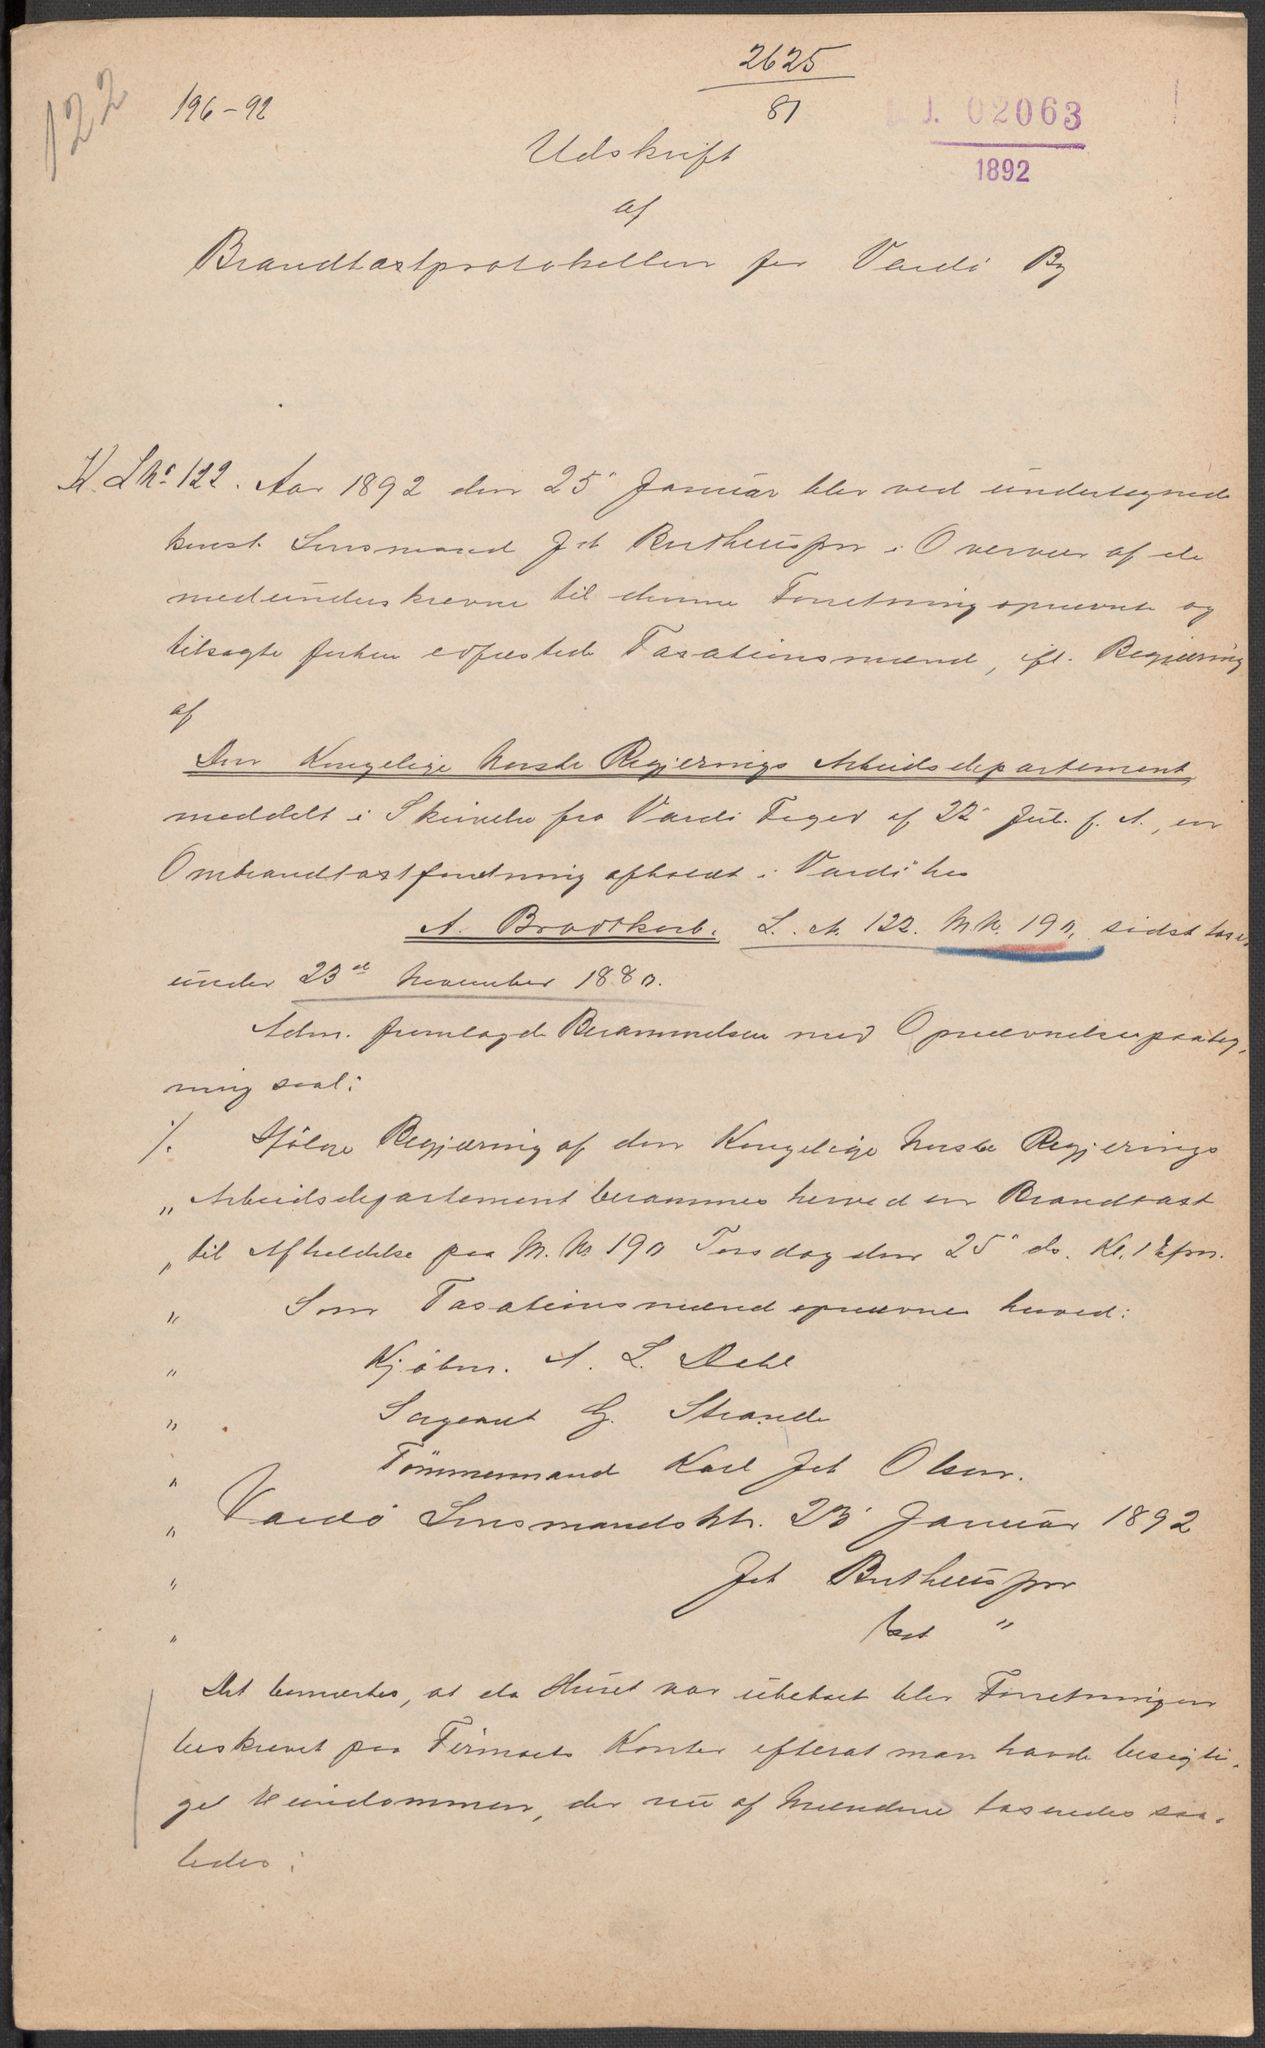 122
196-92
2625
81
J. 02063
1892
Udskrift
af
Brandtaxtprotokollen for Vardö By
K. L No 122. Aar 1892 den 25' Januar blev ved undertegnede
konst. Lensmand Joh Bertheussen i Overvær af de
medunderskrevne til denne Forretning opnævnte og
tilsagte forhen edfæstede Taxationsmænd, ifl. Begjæring
af
Den Kongelige Norske Regjerings Arbeidsdepartement,
meddelt i Skrivelse fra Vardö Foged af 22' Jul. f. A., en
Ombrandtaxtforretning afholdt i Vardö hos
A. Brodtkorb. L. N. 122. M.N. 190, sidst taxeret
under 23de November 1880.
Adm. fremlagde Berammelsen med Opnævnelsespaateg-
ning saal:
%. Ifölge Begjæring af den Kongelige Norske Regjerings
„ Arbeidsdepartement berammes herved en Brandtaxt
„ til Afholdelse paa M. No 190 Torsdag den 25' ds. Kl. Efm.
„ Som Taxationsmænd opnævnes herved:
„ Kjöbm. A. L. Dahl
„ Sergeant G. Strande
„ Tömmermand Karl Joh Olsen.
„ Vardö Lensmandsktr. 23' Januar 1892
„ Joh Bertheussen
„ kst "
Det bemærkes, at da Huset var ubeboet blev Forretningen
beskrevet paa Firmaets Kontor efterat man havde besigti-
get Eiendommen, der nu af Mændene taxeredes saa-
ledes: